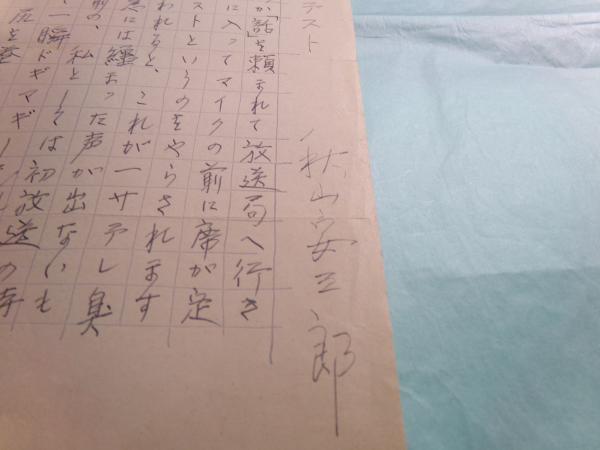 テスト
秋山安三郎
か「話」を頼まれて放送局へ行き
に入ってマイクの前に席が定
ストというのをやらされます
われると、これが一サアテレ臭
急には纏まった声が出ないも
前の、私としては初放送の
一瞬ドギマギ
尻を巻